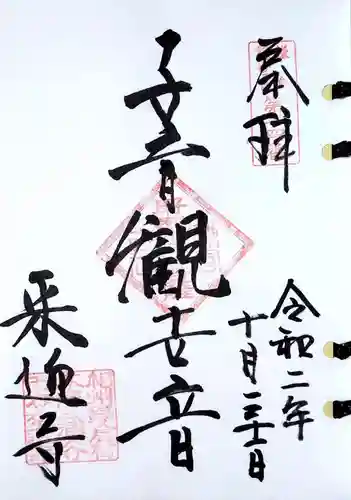 奉拝
令和二年
十月三十一日
子育觀世音
来迎寺